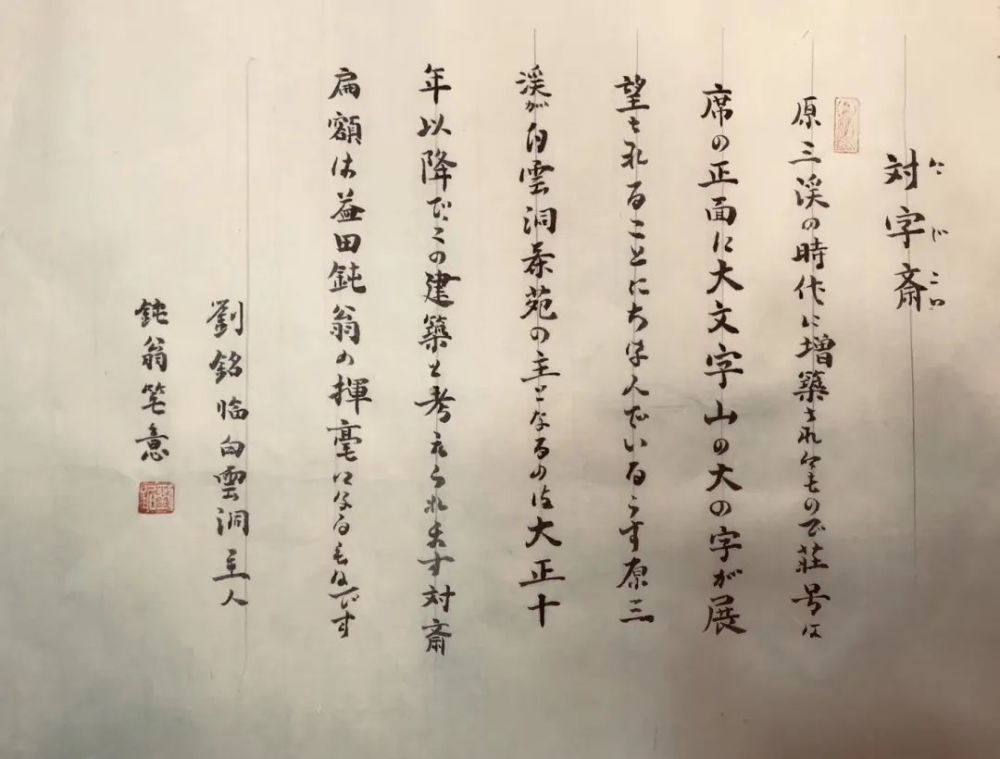 対字斎
原三渓の時代に増築されたもので荘号は
席の正面に大文字山の大の字が展
望されることにちなんでいます原三
渓が白雲洞茶苑の主となるのは大正十
年以降でこの建築と考えられます対斎
扁額は益田鈍翁の揮毫になるものです
劉銘臨白雲洞主人
鈍翁笔意